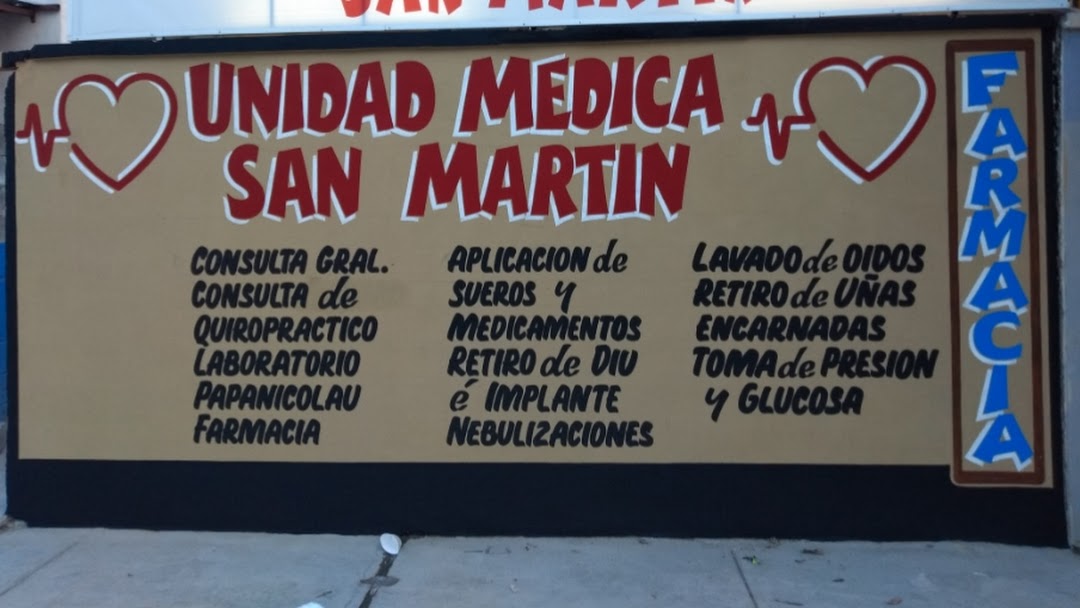 SAN MARTIN
UNIDAD MEDICA
SAN MARTIN
CONSULTA GRAL.
CONSULTA de
QUIROPRACTICO
LABORATORIO
PAPANICOLAU
FARMACIA
APLICACION de
SUEROS Y
MEDICAMENTOS
RETIRO de DIU
é IMPLANTE
NEBULIZACIONES
LAVADO de OIDOS
RETIRO de UÑAS
ENCARNADAS
TOMA de PRESION
y GLUCOSA
FARMACIA